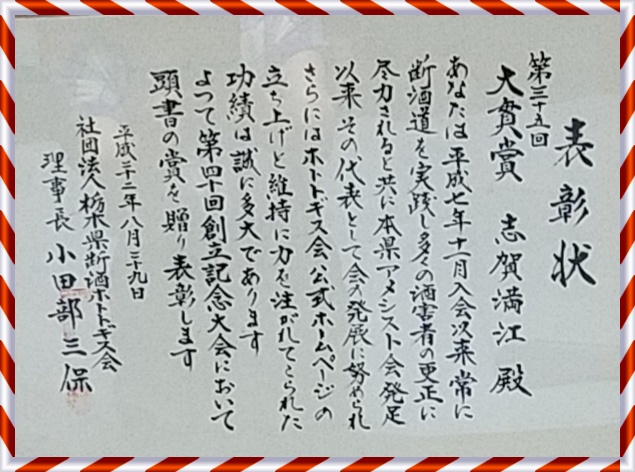 表彰状
第三十五回
大貫賞 志賀満江 殿
あなたは平成七年十一月入会以来常に
断酒道を実践し多くの酒害者の更正に
尽力されると共に本県アメシスト会発足
以来その代表として会の発展に努められ
さらにはホトトギス会公式ホームページの
立ち上げと維持に力を注がれてこられた
功績は誠に多大であります
よつて第四十回創立記念大会において
頭書の賞を贈り表彰します
平成二十二年八月二十九日
社団法人栃木県断酒ホトトギス会
理事長 小田部三保